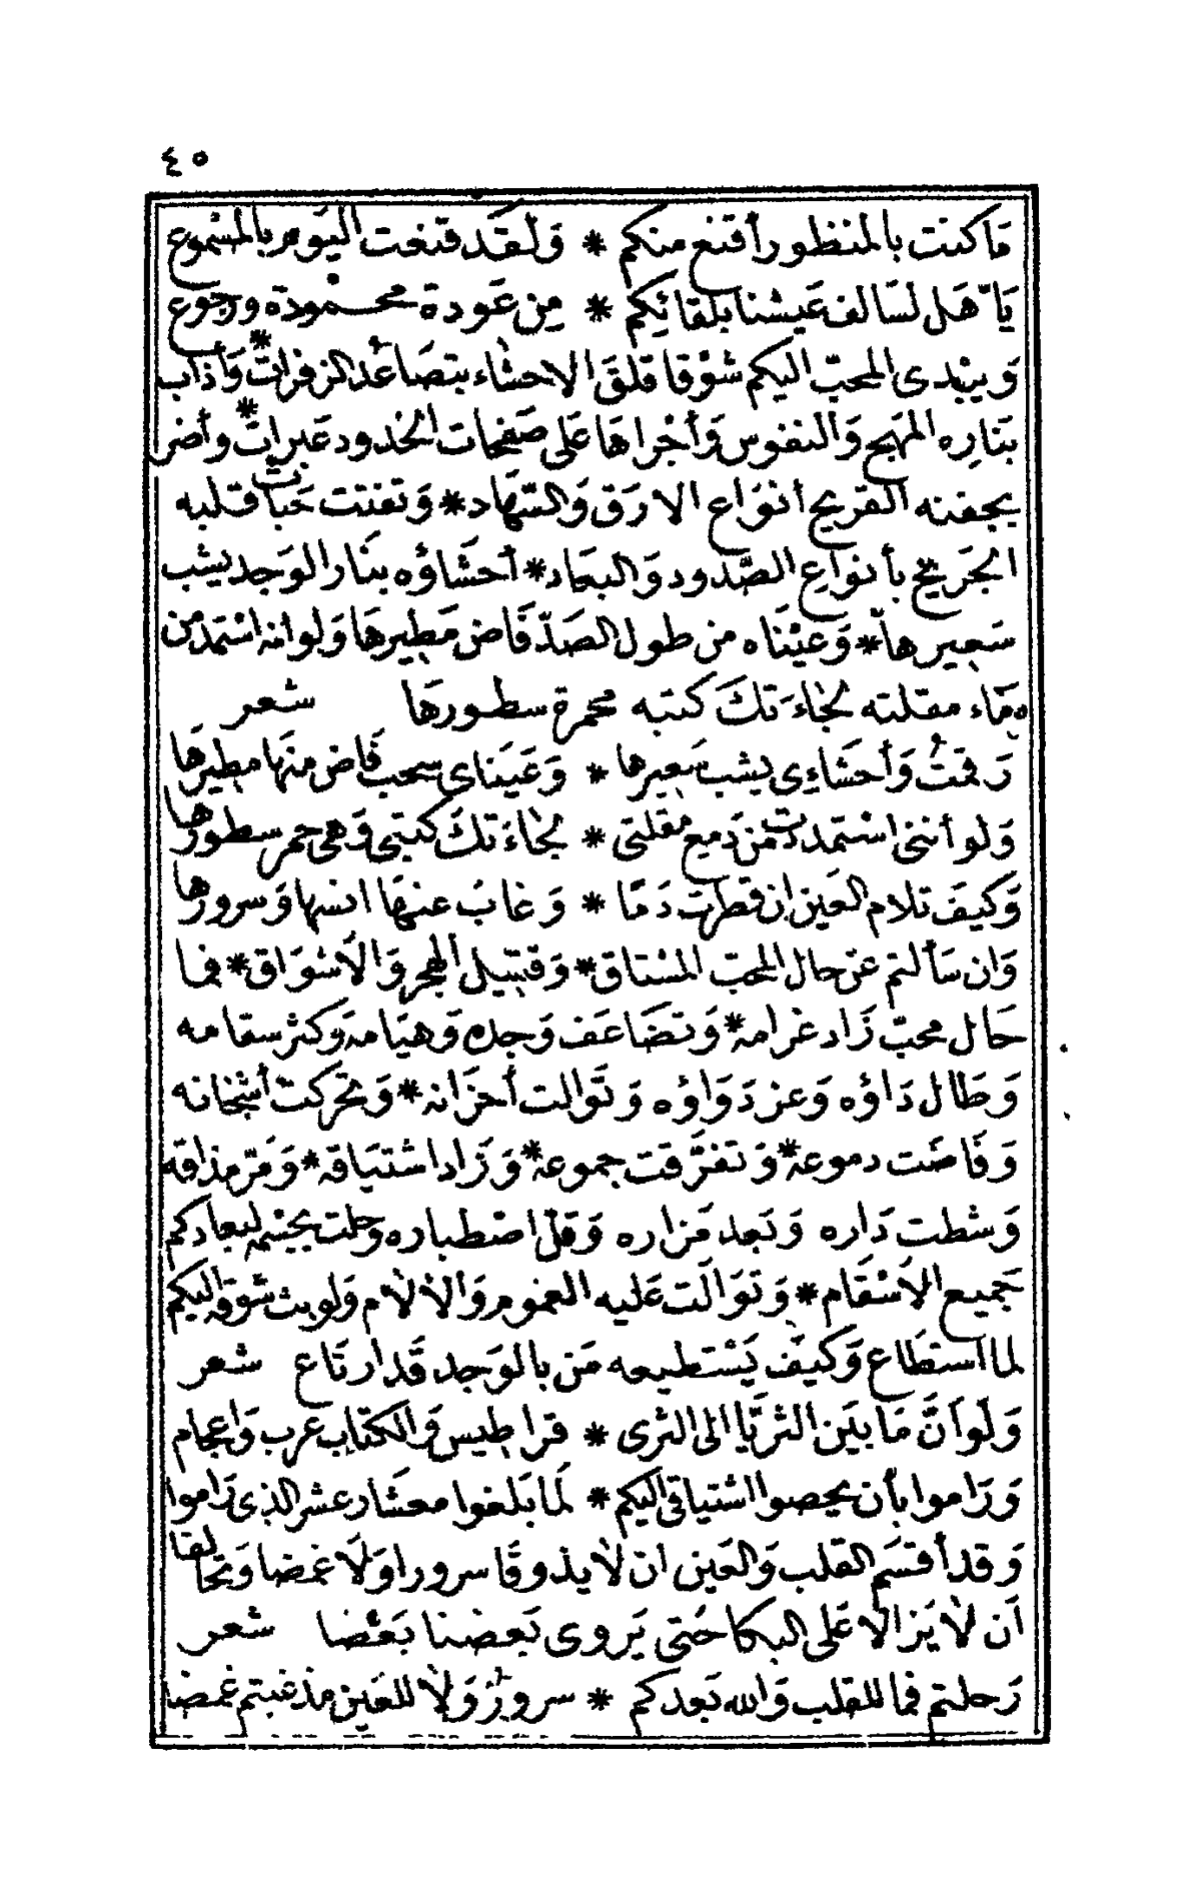 ٤٥
مَا كنت بالمنظور أقنع منكم * وَلَقَد قنعت اليَوم بالمسموع
يَا هَل لسَالف عَيشنا بلقائِكم * مِن عَودة محمودة ورجوع
وَيبْدى المحبّ اليكم شوْقا قلقَ الاحشاء بتصَاعُد الزفرات * وَأذاب
بنَارِه المهَج وَالنفوس وَأجْراهَا عَلى صَفحات الخدود عَبرات * وأضر
بجفنه القريح أنوَاع الارَق وَالسّهَاد * وَتفتتت حَبات قلبه
الجَريح بأنوَاعِ الصّدود وَالبعَاد * أحَشَاؤه بنَار الوَجد يشب
سَعيرهَا * وَعيْنَاه من طول الصَدّ فَاض مَطيرهَا وَلو انه استمد من
دمَاء مقلته لجَاءَتكَ كتبه محمرة سطورهَا شعر
رَقمتُ وَأحشَاءِى يشب سَعيرها * وَعَينَاى سحب فَاض منهَا مطيرهَا
وَلو أننى استمددت من دَمع مقلتى * لجَاءَتكَ كتبى وَهى حمر سطورهَا
وَكيفَ تلام العَين ان قطرت دَمًا * وَغابُ عنهَا انسها وَسرورهَا
وَان سَألتم عَن حال المحبّ المشتاق * وَقتيل الهجر وَالأشوَاق * فما
حَال محبّ زَاد غرامه * وَتضَاعَف وَجده وَهيَامَه وَكثر سقامه
وَطَال دَاؤه وَعز دَوَاؤه وَتَوالت أحزَانه * وَتحركت أشجَانه
وَفَاضَت دموعه * وَتفَرّقت جموعه * وَزَاد اشتيَاقه * وَمَرّ مذاقه
وَشطت دَاره وَبَعد مَزاره وَقلّ اصْطباره وَحلت بجسْمه لبعَادكم
جَميع الأسْقَام * وَتوَالَت عَليه الغموم وَالألام وَلو بث شوقه اليكم
لما استطَاع وَكيفَ يَسْتطيعه مَن بالوَجد قَد ارتَاع شعر
وَلَو اَنَّ مَا بَين الثريَّا الى الثرى * قراطيس وَالكتاب عرب وَاعجام
وَرَاموا بأن يحصوا اشتياقى اليكم * لَما بَلغوا معشَار عشر الذى رَاموا
وَقد أقسَم القلب وَالعَين ان لاَ يذوقَا سرورا وَلَا غمضا وَتحالفا
اَن لَا يَزالا عَلى البكا حَتى يَروى بَعضنا بَعْضا شعر
رَحلتم فما للقلب وَالله بَعدكم * سرورٌ وَلَا للعَين مذ غبتم غمضا